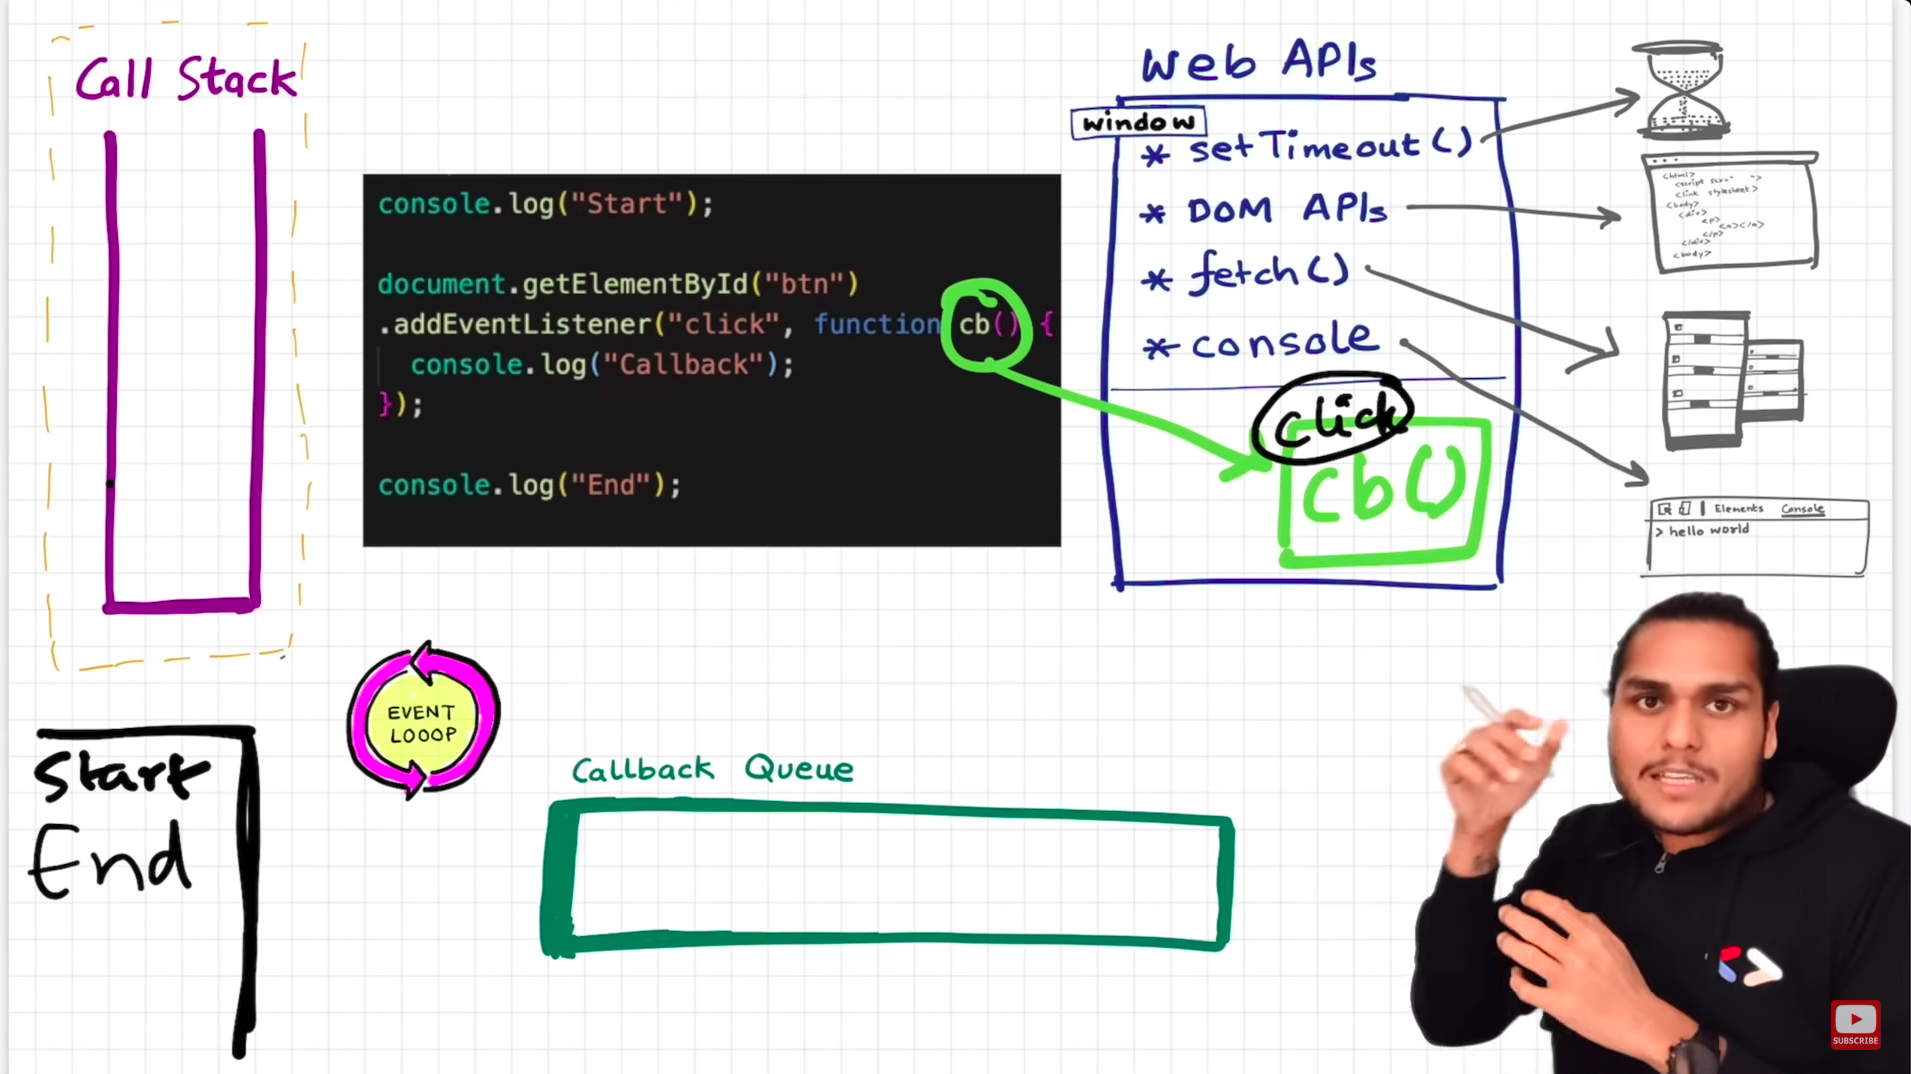 Call Stack
console.log("Start");
document.getElementById("btn")
.addEventListener("click", function cb() {
console.log("Callback");
});
console.log("End");
Web APIs
window
* setTimeout()
* DOM APIs
* fetch()
* console
click
cb()
<html>
<body>
<div>
<p>
<a></a>
</p>
</div>
<body>
Elements Console
> hello world
Start
End
EVENT
LOOOP
Callback Queue
SUBSCRIBE